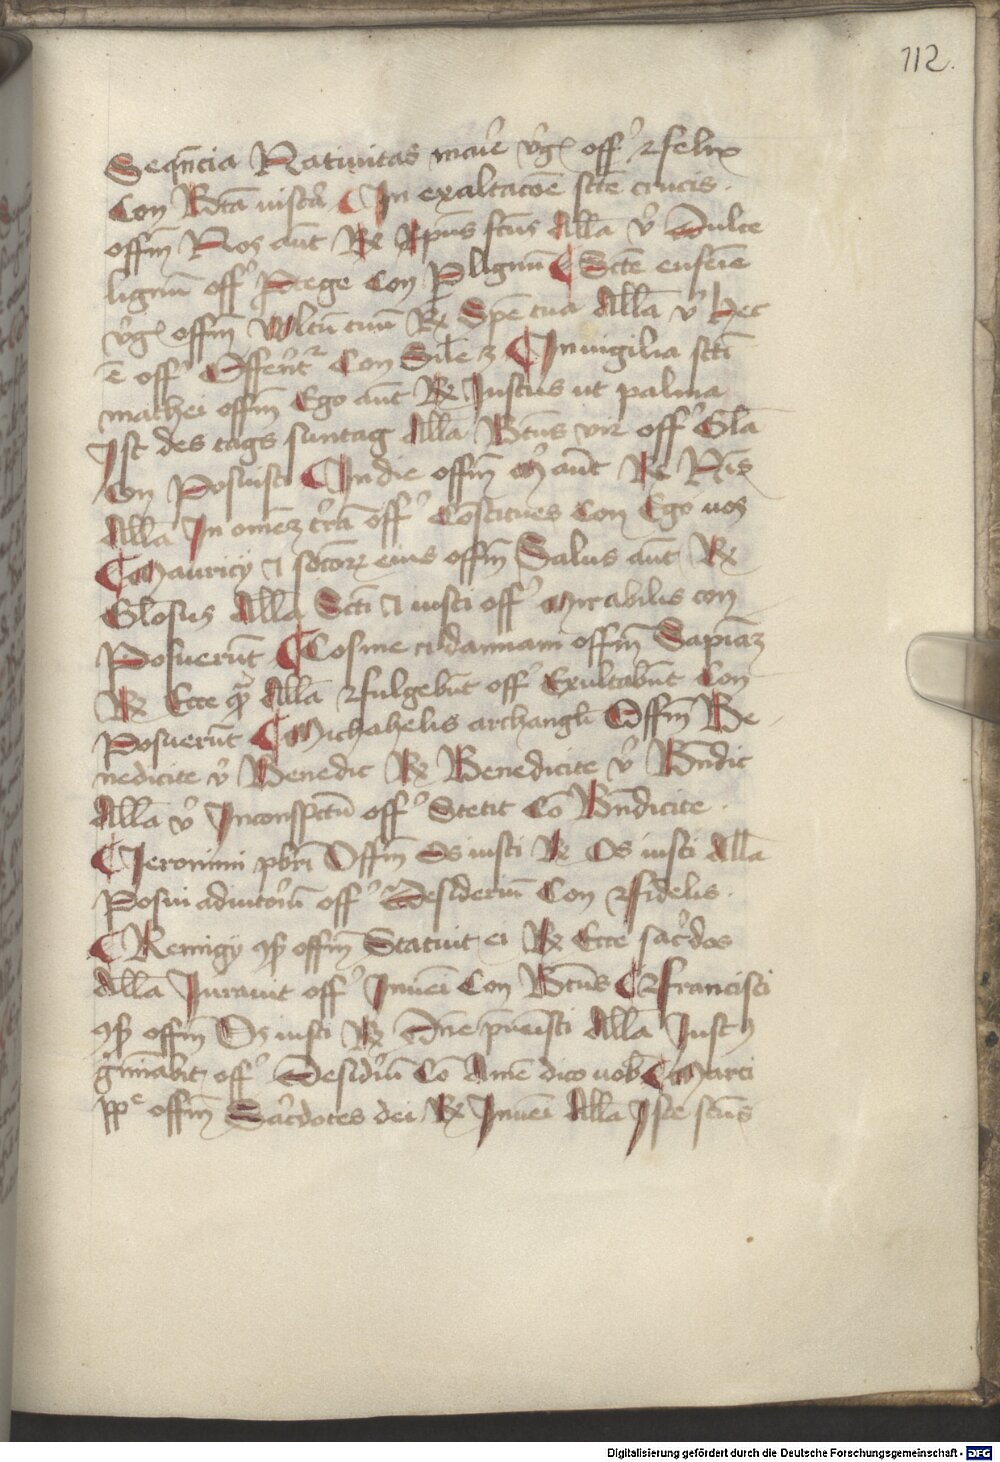 112.
Seqn̄cia Natiuitas marie v̓gͥ off̓ ꝛfelix
Con Btā uiscā ¶ In exaltacōe sctē crucis.
offm̄ Nos aūt Re Xpūs fcūs Allā v̓ Dulce
lignū off̓ Ptege Con P lignū ¶ Sctē eufeīe
v̓gͥ offm̄ Vultū tuū Rx Spē tua Allā v̓ hec
ē off̓ Offerent͛ Con Sile ꝫ ¶ In uigilia scti
mathei offm̄ Ego aūt Rx Justus ut palma
Ist des tags suntag Allā Btūs vir off̓ Glā
Con Posuisti ¶ In die offm̄ Os aūt Re Nis
Allā In omēꝫ t̓rā off̓ Cōstitues Con Ego uos
¶ Mauricÿ et socioꝝ eius offm̄ Salus aūt Rx
Glōsus Allā Scti et iusti off̓ Mirabilis con
Posuerūt ¶ Cosme et damiani offm̄ Sapiāꝫ
Rx Ecce qͣ Allā ꝛfulgebūt off̓ Exultabūt Con
Posuerūt ¶ Michahelis archangli Offm̄ Be
nedicite v̓ Benedic Rx Benedicite v̓ Bn̄dic
Allā v̓ In conspctū off̓ Stetit Cō Bn̄dicite.
¶ Jeronimi pbri Offm̄ Os iusti Re Os iusti Allā
Posui adiutoriū off̓ Desideriū Con ꝛfidelis.
¶ Remigÿ ꝯf offm̄ Statuit ei Rx Ecce sac̓dos
Allā Jurauit off̓ Inueī Con Btūs ¶ ꝛfrancisci
ꝯf offm̄ Os iusti Rx Dn̄e p̄uenisti Allā Justꝰ
g̓minabit off̓ Desid̓iū Cō Amē dico uob̄ ¶ Marci
pp̄e offm̄ Sac̓dotes dei Rx Inueī Allā Iste scūs
Digitalisierung gefördert durch die Deutsche Forschungsgemeinschaft - DFG